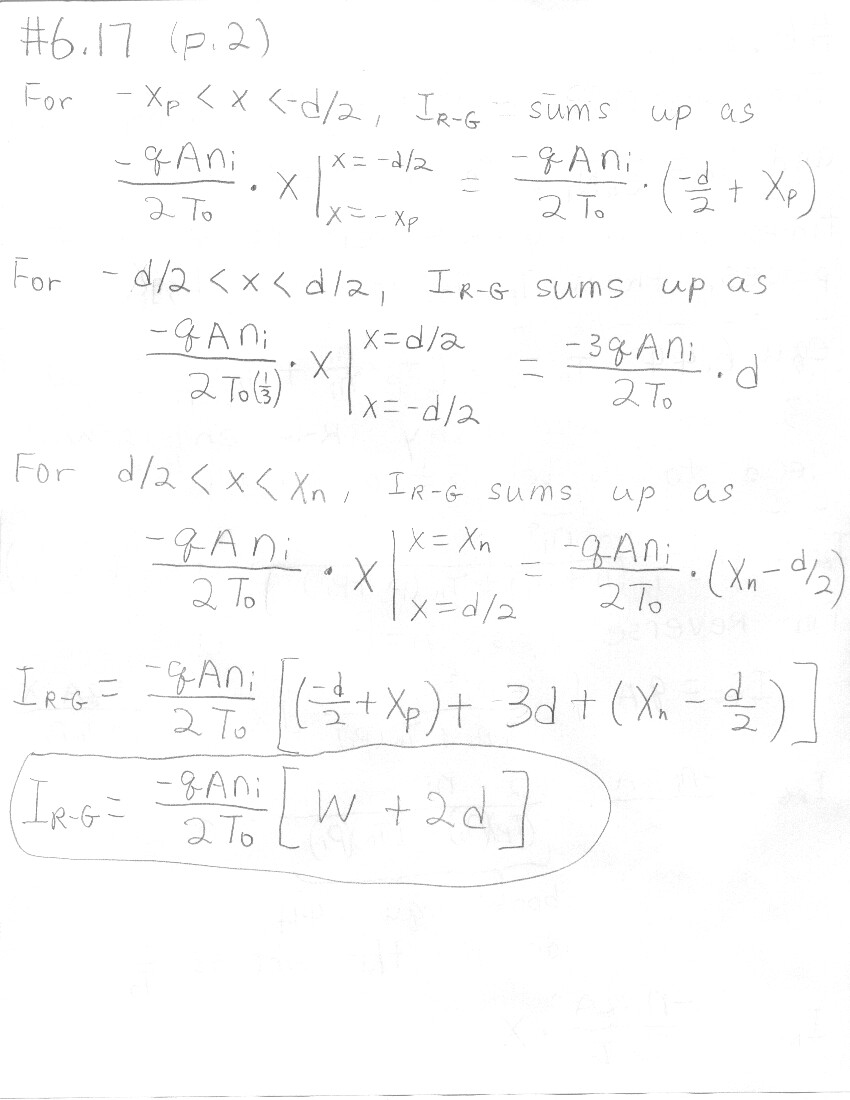 #6.17 (p.2)
For -Xp < x < -d/2, I_R-G sums up as
-qAni / 2τ₀ · x | x=-d/2, x=-xp = -qAni / 2τ₀ · (-d/2 + Xp)
For -d/2 < x < d/2, I_R-G sums up as
-qAni / 2τ₀(1/3) · x | x=d/2, x=-d/2 = -3qAni / 2τ₀ · d
For d/2 < x < Xn, I_R-G sums up as
-qAni / 2τ₀ · x | x=Xn, x=d/2 = -qAni / 2τ₀ · (Xn - d/2)
I_R-G = -qAni / 2τ₀ [(-d/2 + Xp) + 3d + (Xn - d/2)]
I_R-G = -qAni / 2τ₀ [W + 2d]